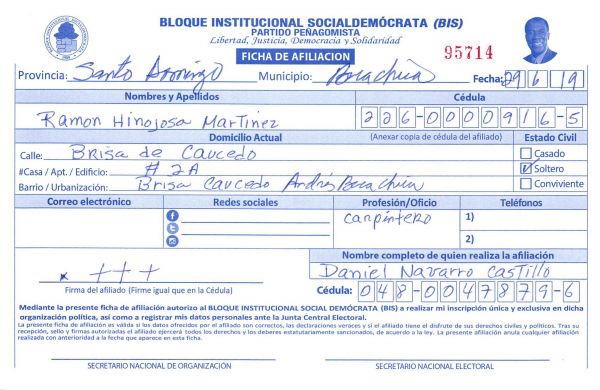 BLOQUE INSTITUCIONAL SOCIALDEMÓCRATA (BIS)
PARTIDO PEÑAGOMISTA
Libertad, Justicia, Democracia y Solidaridad
FICHA DE AFILIACION
95714
Provincia: Santo Domingo Municipio: Boca chica Fecha: 29/6/19
Nombres y Apellidos Cédula
Ramon Hinojosa Martinez 226-0000916-5
Domicilio Actual (Anexar copia de cédula del afiliado) Estado Civil
Calle: Brisa de Caucedo Casado
#Casa / Apt. / Edificio: # 2A Soltero
Barrio / Urbanización: Brisa Caucedo Andrés Boca chica Conviviente
Correo electrónico Redes sociales Profesión/Oficio Teléfonos
carpintero 1)
2)
Nombre completo de quien realiza la afiliación
x +++ Daniel Navarro Castillo
Firma del afiliado (Firme igual que en la Cédula) Cédula: 048-0047879-6
Mediante la presente ficha de afiliación autorizo al BLOQUE INSTITUCIONAL SOCIAL DEMÓCRATA (BIS) a realizar mi inscripción única y exclusiva en dicha
organización política, así como a registrar mis datos personales ante la Junta Central Electoral.
La presente ficha de afiliación es válida si los datos ofrecidos por el afiliado son correctos, las declaraciones veraces y si el afiliado tiene el disfrute de sus derechos civiles y políticos. Tras su
recepción, sello y firmas autorizadas el afiliado ejercerá todos los derechos y los deberes estatutariamente sancionados, de acuerdo a la ley. La presente afiliación anula cualquier afiliación
realizada con anterioridad a la fecha que aparece en esta ficha.
SECRETARIO NACIONAL DE ORGANIZACIÓN SECRETARIO NACIONAL ELECTORAL